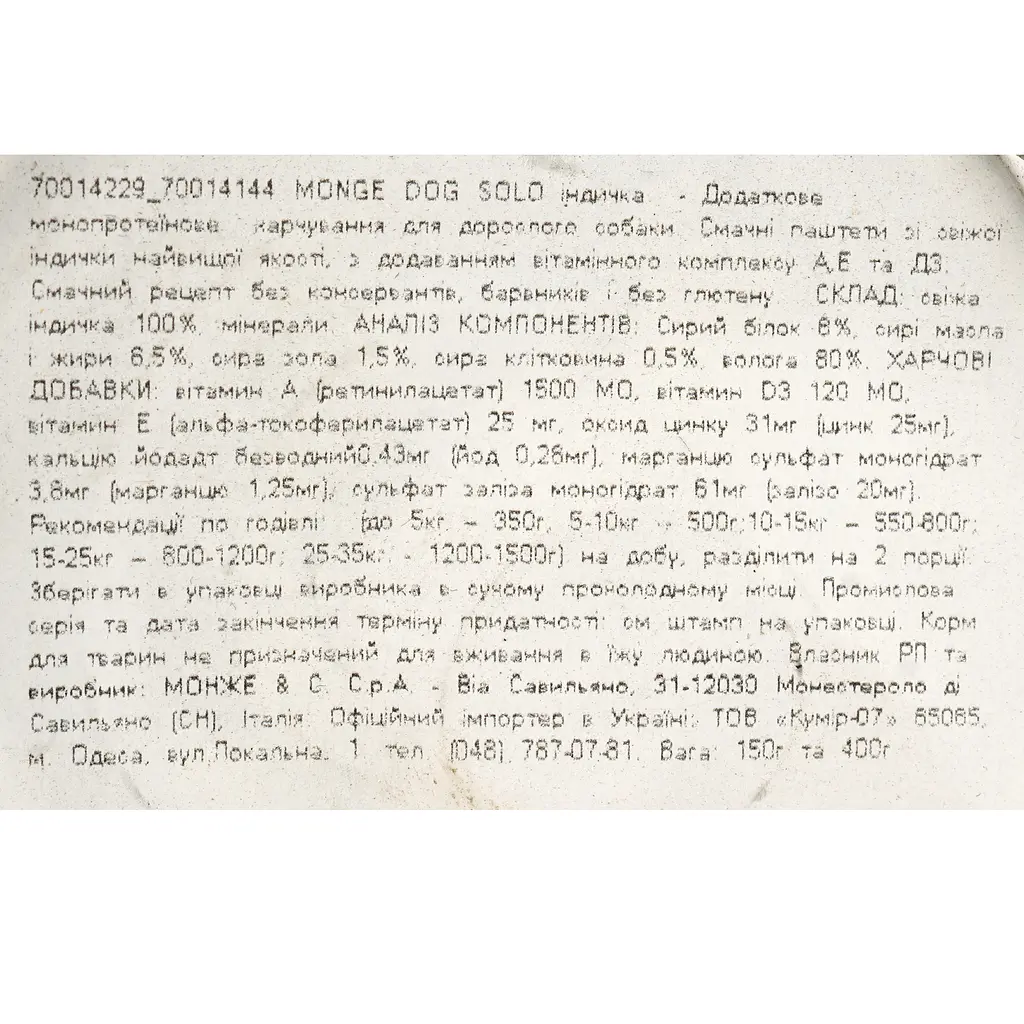 70014229_70014144 MONGE DOG SOLO індичка - Додаткове
монопротеїнове харчування для дорослого собаки. Смачні паштети зі свіжої
індички найвищої якості, з додаванням вітамінного комплексу А,Е та Д3.
Смачний рецепт без консервантів, барвників і без глютену. СКЛАД: свіжа
індичка 100%, мінерали. АНАЛІЗ КОМПОНЕНТІВ: Сирий білок 8%, сирі масла
і жири 6,5%, сира зола 1,5%, сира клітковина 0,5%, волога 80%. ХАРЧОВІ
ДОБАВКИ: вітамин А (ретинилацетат) 1500 МО, вітамин D3 120 МО,
вітамин Е (альфа-токоферилацетат) 25 мг, оксид цинку 31мг (цинк 25мг),
кальцію йодадт безводний0,43мг (йод 0,28мг), марганцю сульфат моногідрат
3,8мг (марганцю 1,25мг), сульфат заліза моногідрат 61мг (залізо 20мг).
Рекомендації по годівлі: (до 5кг. – 350г, 5-10кг – 500г;10-15кг – 550-800г;
15-25кг – 800-1200г; 25-35кг. - 1200-1500г) на добу, разділити на 2 порції.
Зберігати в упаковці виробника в сухому прохолодному місці. Промислова
серія та дата закінчення терміну придатності: см штамп на упаковці. Корм
для тварин не призначений для вживання в їжу людиною. Власник РП та
виробник: МОНЖЕ & С. С.р.А. - Віа Савильяно, 31-12030 Монестероло ді
Савильяно (CH), Італія. Офіційний імпортер в Україні: ТОВ «Кумір-07» 65065,
м. Одеса, вул.Локальна, 1 тел. (048) 787-07-81. Вага: 150г та 400г